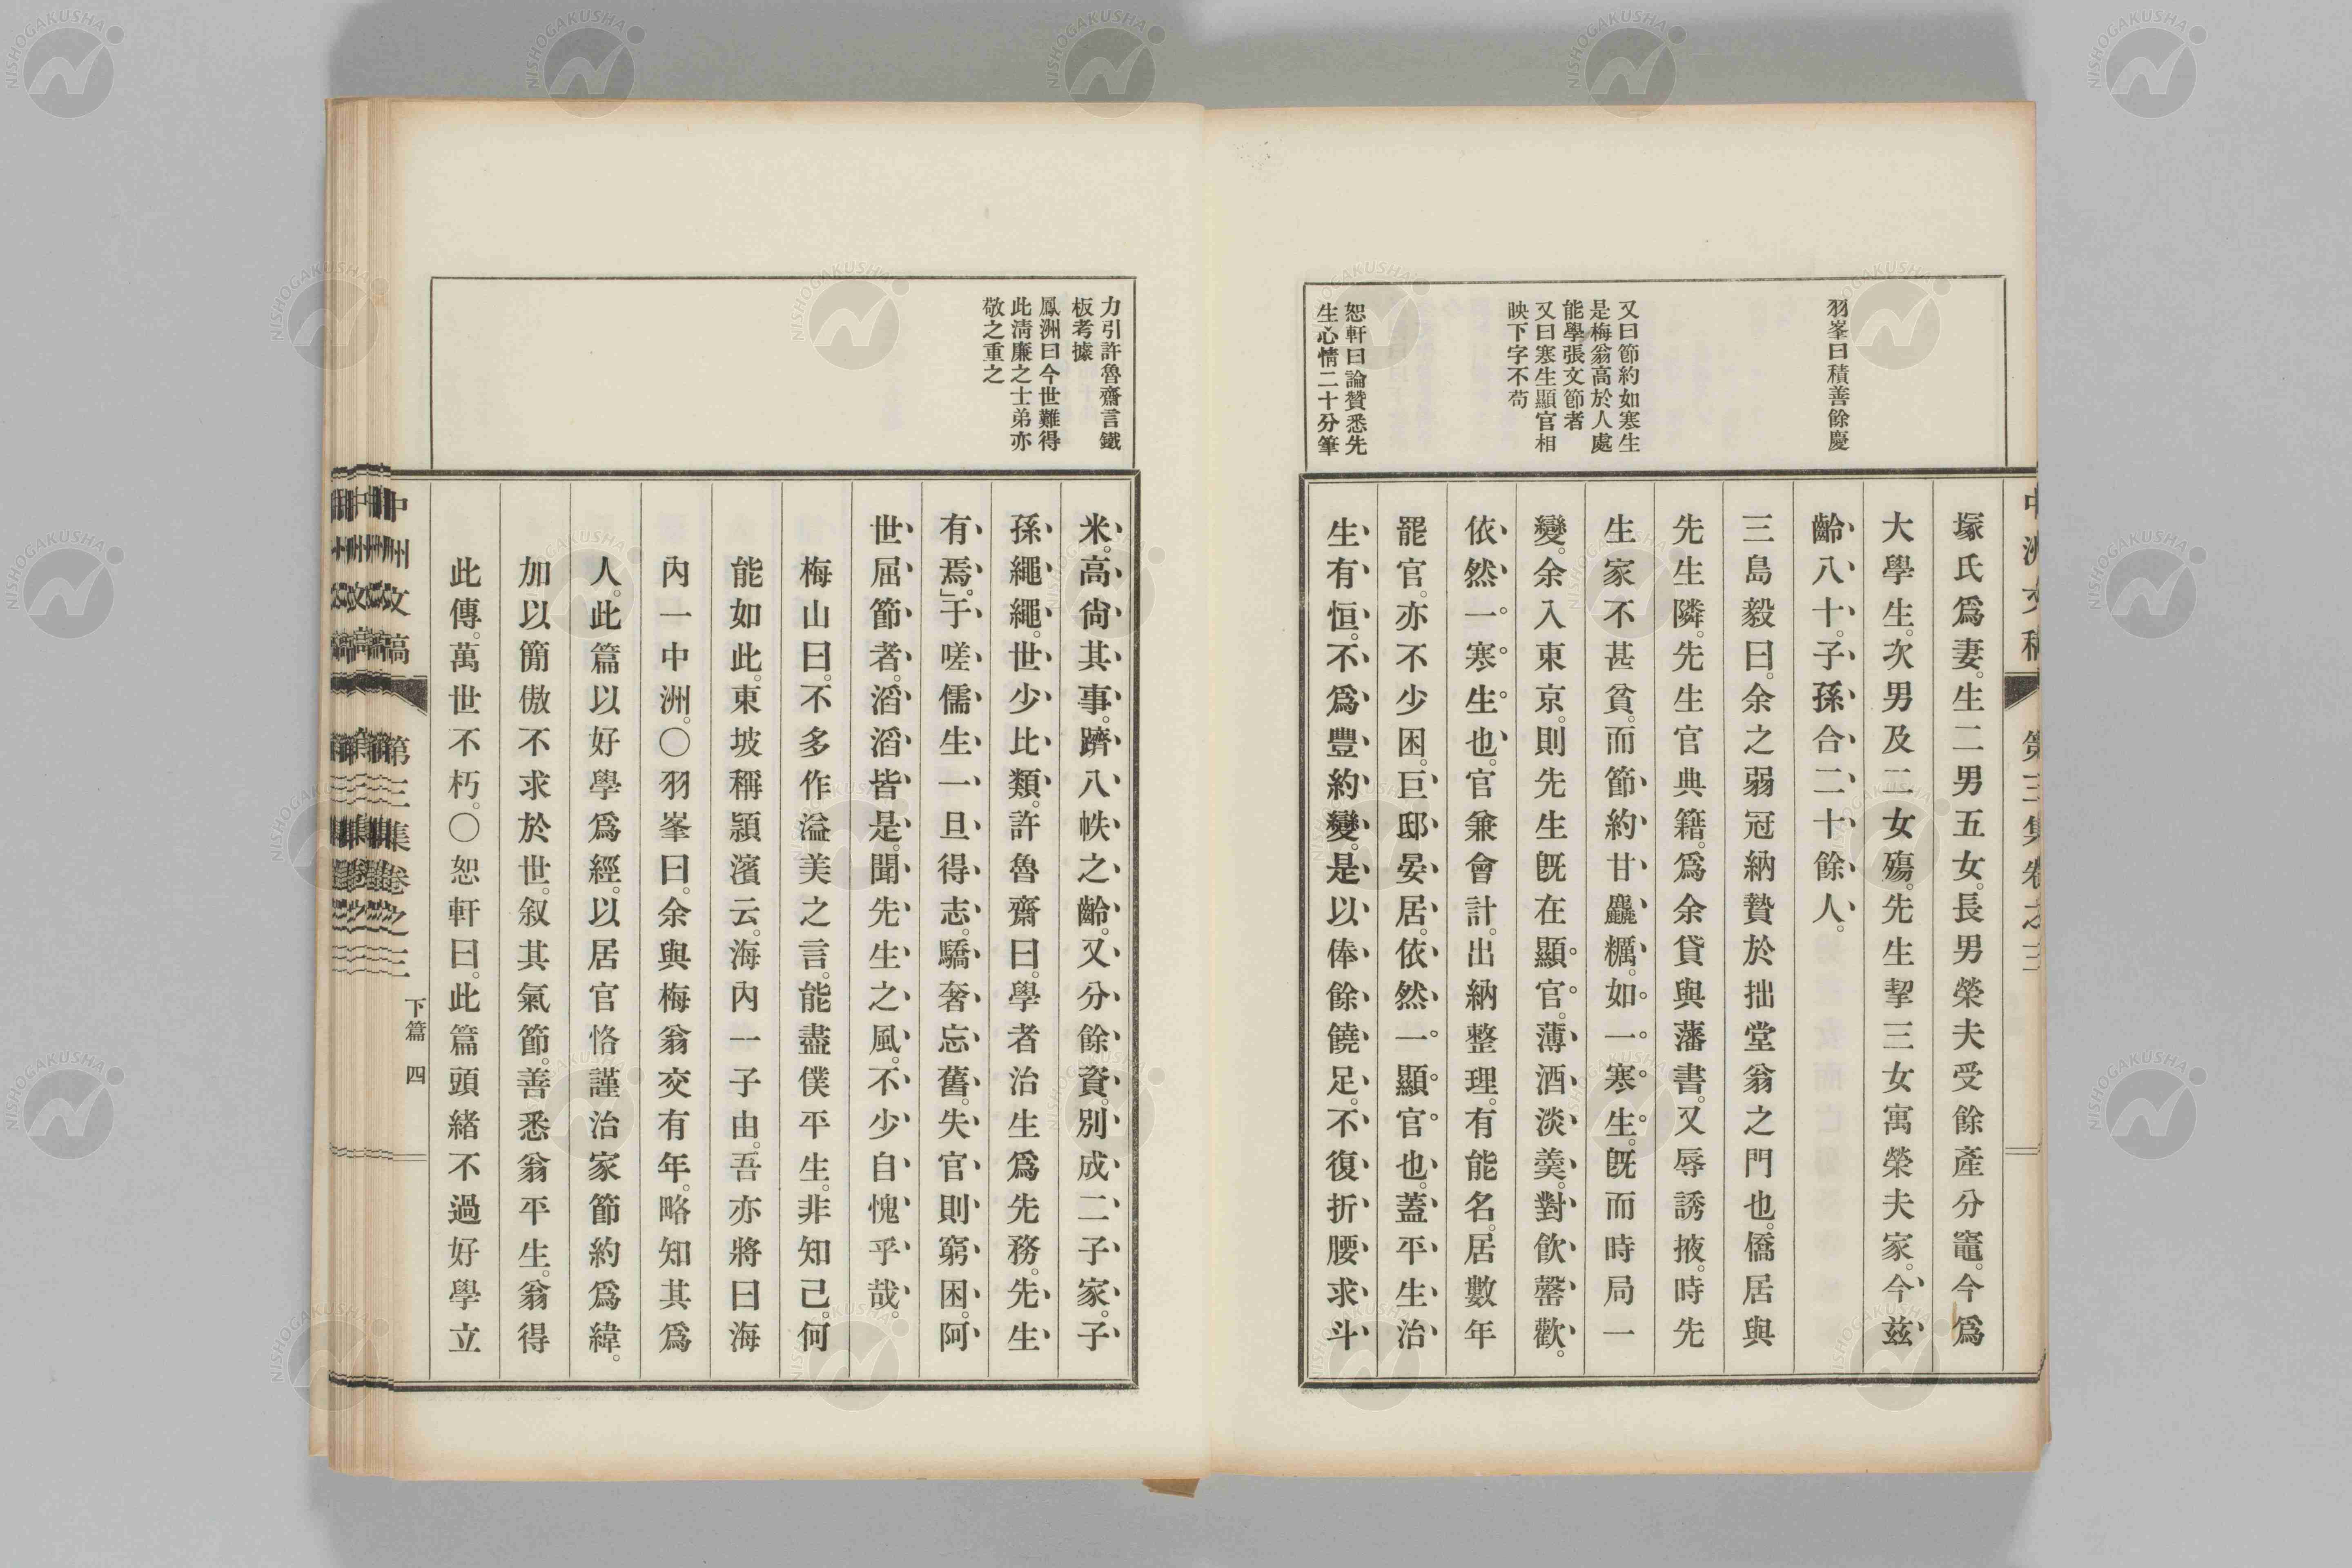 中洲文稿 第三集卷之三
羽峯曰積善餘慶
又曰節約如寒生
是梅翁高於人處
能學張文節者
又曰寒生顯官相
映下字不苟
恕軒曰論贊悉先
生心情二十分筆
塚氏爲妻。生二男五女。長男榮夫受餘產分竈。今爲
大學生。次男及二女殤。先生挈三女寓榮夫家。今玆
齡八十。子孫合二十餘人。
三島毅曰。余之弱冠納贄於拙堂翁之門也。僑居與
先生隣。先生官典籍。爲余貸與藩書。又辱誘掖。時先
生家不甚貧。而節約甘麤糲。如一寒生。既而時局一
變。余入東京。則先生既在顯官。薄酒淡羮。對飮罄歡。
依然一寒生也。官兼會計。出納整理。有能名。居數年
罷官。亦不少困。巨邸晏居。依然一顯官也。蓋平生治
生有恒。不爲豐約變。是以俸餘饒足。不復折腰求斗
力引許魯齋言鐵
板考據
鳳洲曰今世難得
此淸廉之士弟亦
敬之重之
米。高尙其事。躋八帙之齡。又分餘資。別成二子家。子
孫繩繩。世少比類。許魯齋曰。學者治生爲先務。先生
有焉。」于嗟儒生一旦得志。驕奢忘舊。失官則窮困。阿
世屈節者。滔滔皆是。聞先生之風。不少自愧乎哉。
梅山曰。不多作溢美之言。能盡僕平生。非知己。何
能如此。東坡稱潁濱云。海內一子由。吾亦將曰海
內一中洲。〇羽峯曰。余與梅翁交有年。略知其爲
人。此篇以好學爲經。以居官恪謹治家節約爲緯。
加以簡傲不求於世。叙其氣節。善悉翁平生。翁得
此傳。萬世不朽。〇恕軒曰。此篇頭緒不過好學立
中洲文稿 第三集卷之三 下篇 四